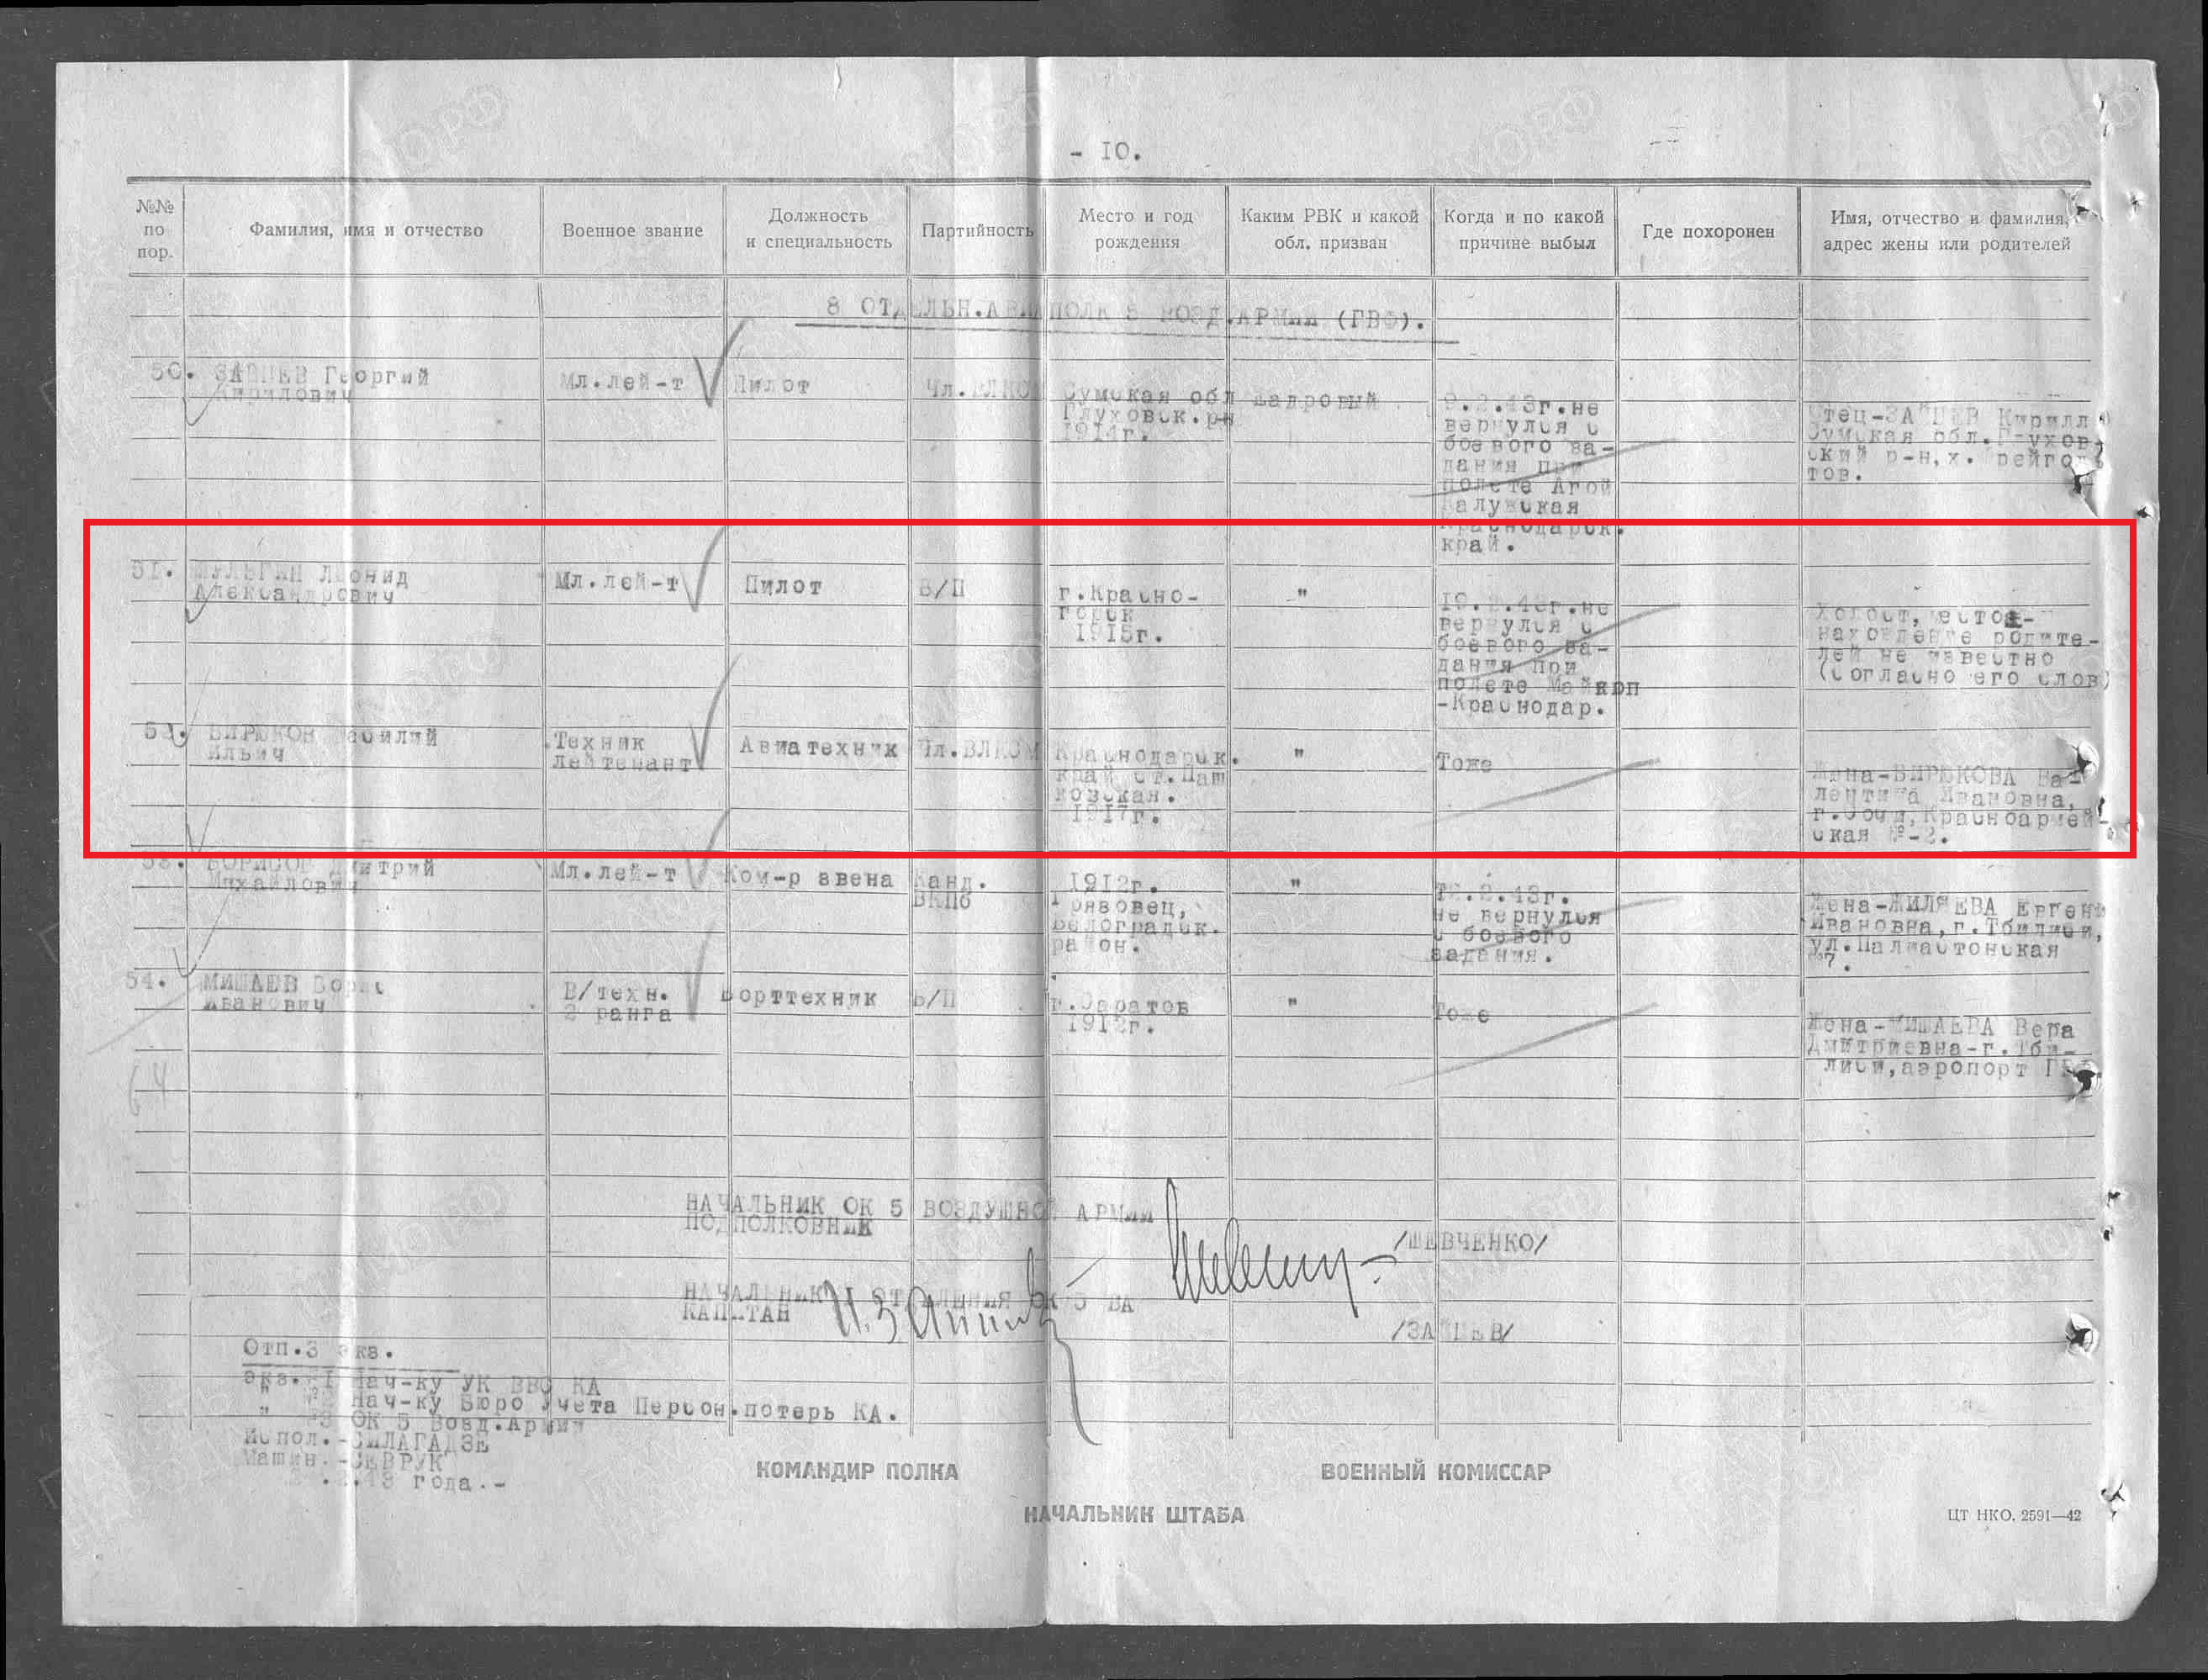 - 10.
№№ по пор.
Фамилия, имя и отчество
Военное звание
Должность и специальность
Партийность
Место и год рождения
Каким РВК и какой обл. призван
Когда и по какой причине выбыл
Где похоронен
Имя, отчество и фамилия, адрес жены или родителей
8 ОТДЕЛЬН.АВИАПОЛК 5 ВОЗД.АРМИИ (ГВФ).
50. ЗАЙЦЕВ Георгий
Кирилович
Мл.лей-т
Пилот
Чл.ВЛКСМ
Сумская обл
Глуховск.рн
1914г.
Кадровый
9.2.43г.не
вернулся с
боевого за-
дания при
полете Агой
Калужская
Краснодарск.
край.
Отец-ЗАЙЦЕВ Кирилл
Сумская обл.Глухов-
ский р-н,х.
тов.
51. Леонид
Александрович
Мл.лей-т
Пилот
Б/П
г.Красно-
горск
1915г.
"
не
вернулся с
боевого за-
дания при
полете Майкоп
-Краснодар.
Холост, место-
нахождение родите-
лей не известно
(согласно его слов)
52. БИРЮКОВ Василий
Ильич
Техник
лейтенант
Авиатехник
Чл.ВЛКСМ
Краснодарск.
край ст.Паш
ковская.
1917г.
"
Тоже
Жена-БИРЮКОВА Ва-
лентина Ивановна,
г.Сочи,Красноармей-
ская №-2.
53. БОРИСОВ Дмитрий
Михайлович
Мл.лей-т
Ком-р звена
Канд.
ВКПб
1912г.
Грязовец,
Белоградск.
район.
"
не вернулся
с боевого
задания.
Жена-ЖИЛЯЕВА Евгени
Ивановна,г.Тбилиси,
ул.Палиастонская
7.
54. МИШАЕВ Борис
Иванович
В/техн.
2 ранга
Борттехник
Б/П
г.Саратов
1912г.
"
Тоже
Жена-МИШАЕВА Вера
Дмитриевна-г.Тби-
лиси,аэропорт ГВФ.
64
НАЧАЛЬНИК ОК 5 ВОЗДУШНОЙ АРМИИ
ПОДПОЛКОВНИК
/ШЕВЧЕНКО/
НАЧАЛЬНИК ОТДЕЛЕНИЯ ОК 5 ВА
КАПИТАН
/ЗАЙЦЕВ/
Отп.3 экз.
экз.№1 Нач-ку УК ВВС КА
" №2 Нач-ку Бюро Учета Персон.потерь КА.
" №3 ОК 5 Возд.Армии
Испол.-СИЛАГАДЗЕ
Машин.-СЕВРУК
43 года.-
КОМАНДИР ПОЛКА
ВОЕННЫЙ КОМИССАР
НАЧАЛЬНИК ШТАБА
ЦТ НКО. 2591—42